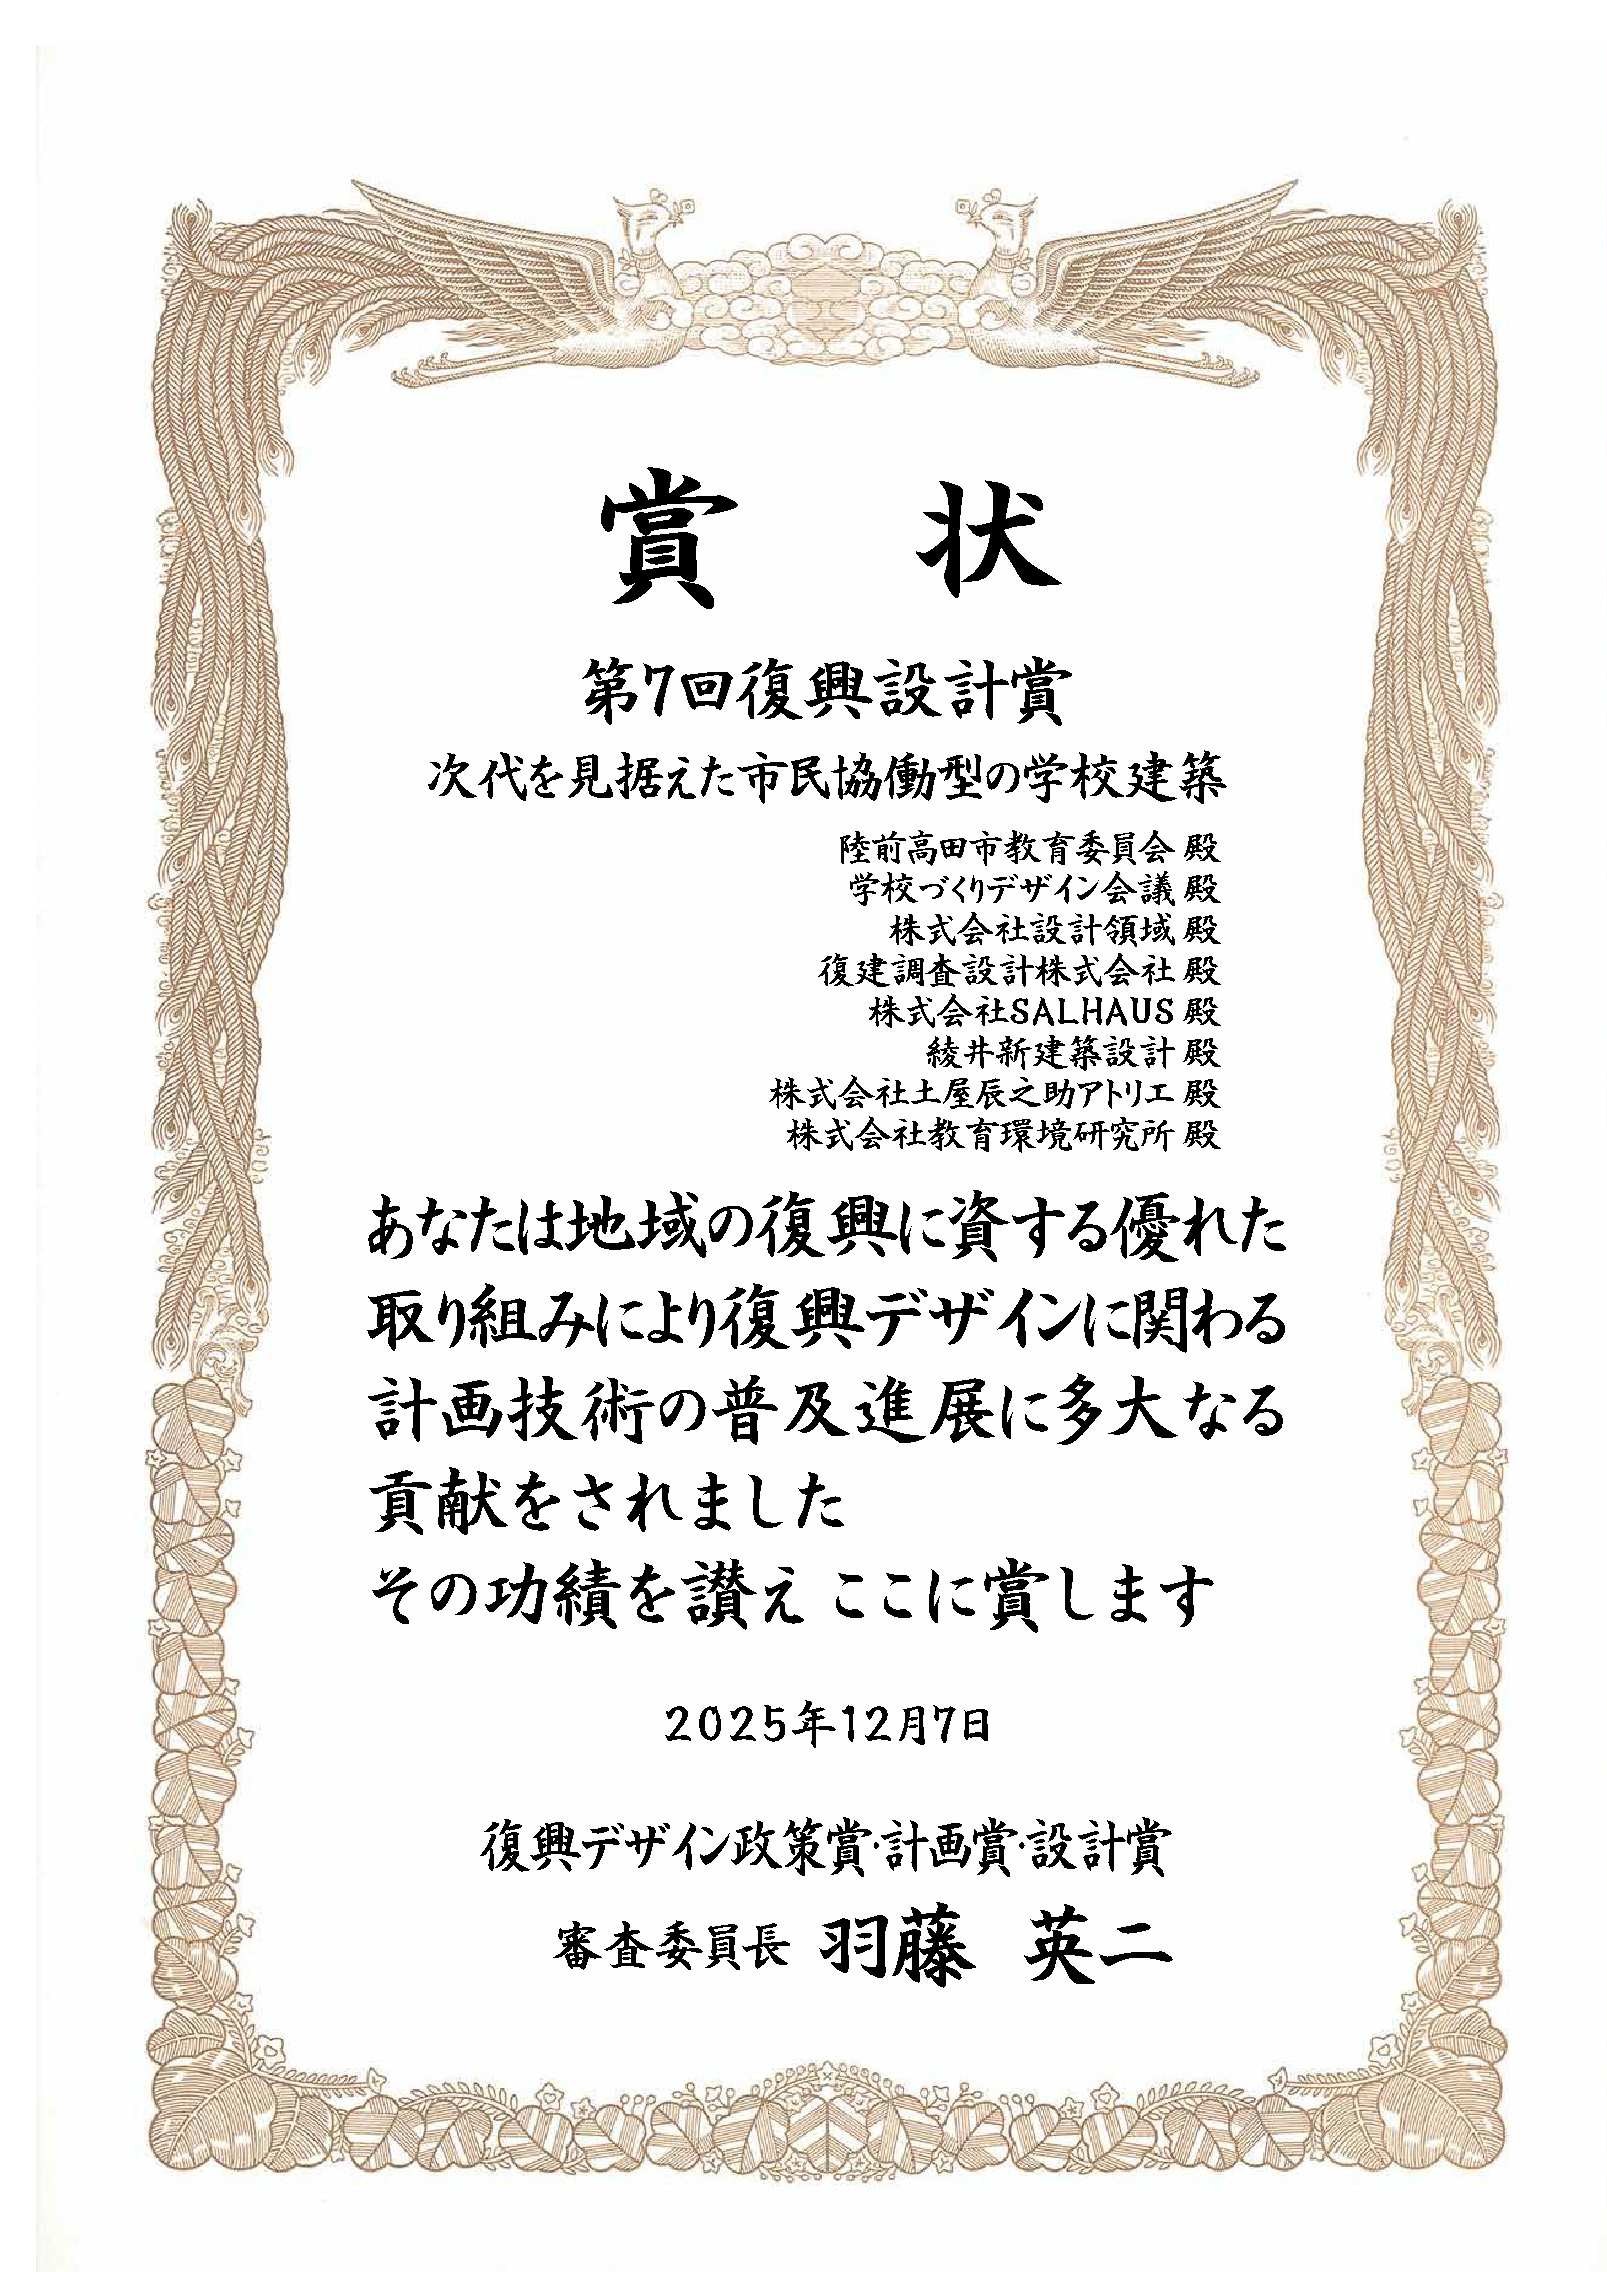 賞状
第7回復興設計賞
次代を見据えた市民協働型の学校建築
陸前高田市教育委員会 殿
学校づくりデザイン会議 殿
株式会社設計領域 殿
復建調査設計株式会社 殿
株式会社SALHAUS 殿
綾井新建築設計 殿
株式会社土屋辰之助アトリエ 殿
株式会社教育環境研究所 殿
あなたは地域の復興に資する優れた
取り組みにより復興デザインに関わる
計画技術の普及進展に多大なる
貢献をされました
その功績を讃え ここに賞します
2025年12月7日
復興デザイン政策賞・計画賞・設計賞
審査委員長 羽藤 英二